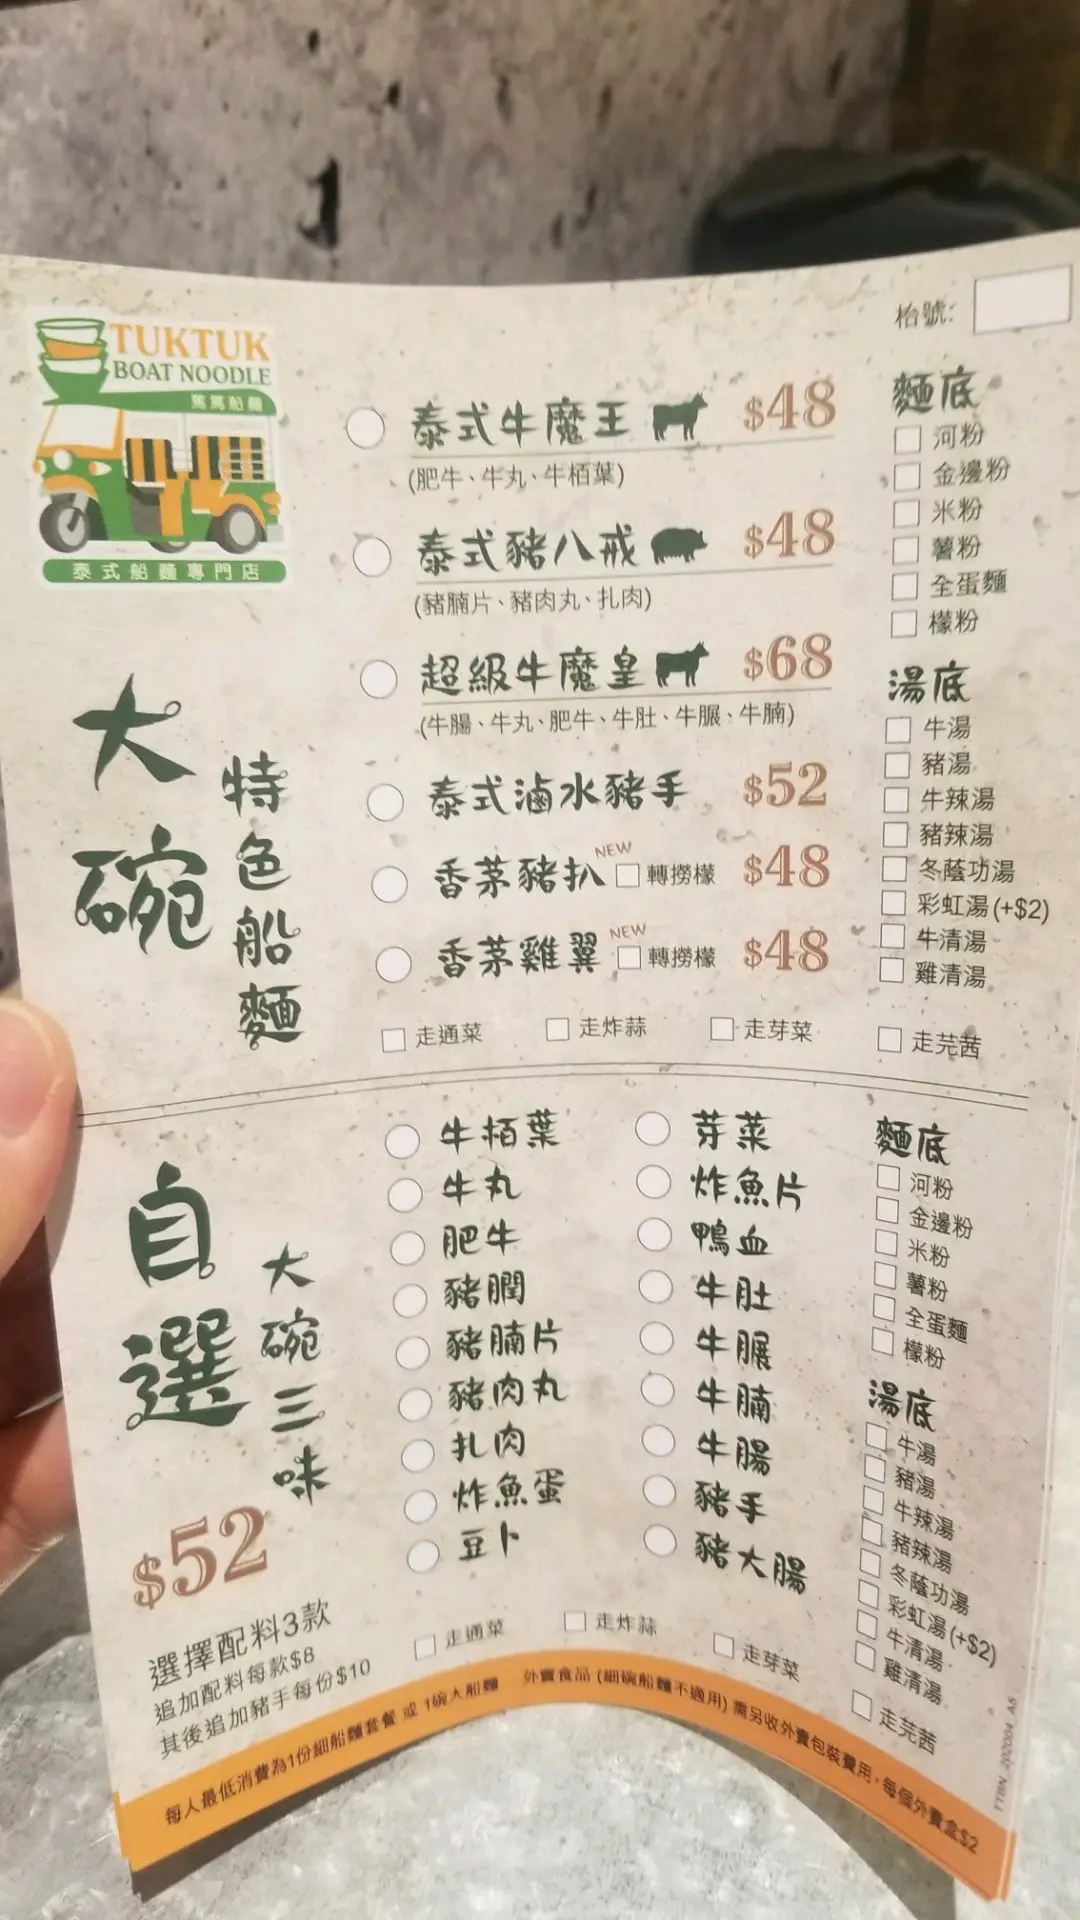 TUKTUK
BOAT NOODLE
篤篤船麵
泰式船麵專門店
枱號:
大碗
特色船麵
泰式牛魔王 $48
(肥牛、牛丸、牛栢葉)
泰式豬八戒 $48
(豬腩片、豬肉丸、扎肉)
超級牛魔皇 $68
(牛腸、牛丸、肥牛、牛肚、牛𦟌、牛腩)
泰式滷水豬手 $52
香茅豬扒 NEW 轉撈檬 $48
香茅雞翼 NEW 轉撈檬 $48
走通菜 走炸蒜 走芽菜 走芫茜
麵底
河粉
金邊粉
米粉
薯粉
全蛋麵
檬粉
湯底
牛湯
豬湯
牛辣湯
豬辣湯
冬蔭功湯
彩虹湯(+$2)
牛清湯
雞清湯
自選
大碗三味
$52
選擇配料3款
追加配料每款$8
其後追加豬手每份$10
牛栢葉
牛丸
肥牛
豬膶
豬腩片
豬肉丸
扎肉
炸魚蛋
豆卜
芽菜
炸魚片
鴨血
牛肚
牛𦟌
牛腩
牛腸
豬手
豬大腸
麵底
河粉
金邊粉
米粉
薯粉
全蛋麵
檬粉
湯底
牛湯
豬湯
牛辣湯
豬辣湯
冬蔭功湯
彩虹湯(+$2)
牛清湯
雞清湯
走通菜 走炸蒜 走芽菜 走芫茜
每人最低消費為1份細船麵套餐 或 1碗大船麵 外賣食品 (細碗船麵不適用) 需另收外賣包裝費用，每個外賣盒$2
TTBN_202004_A5